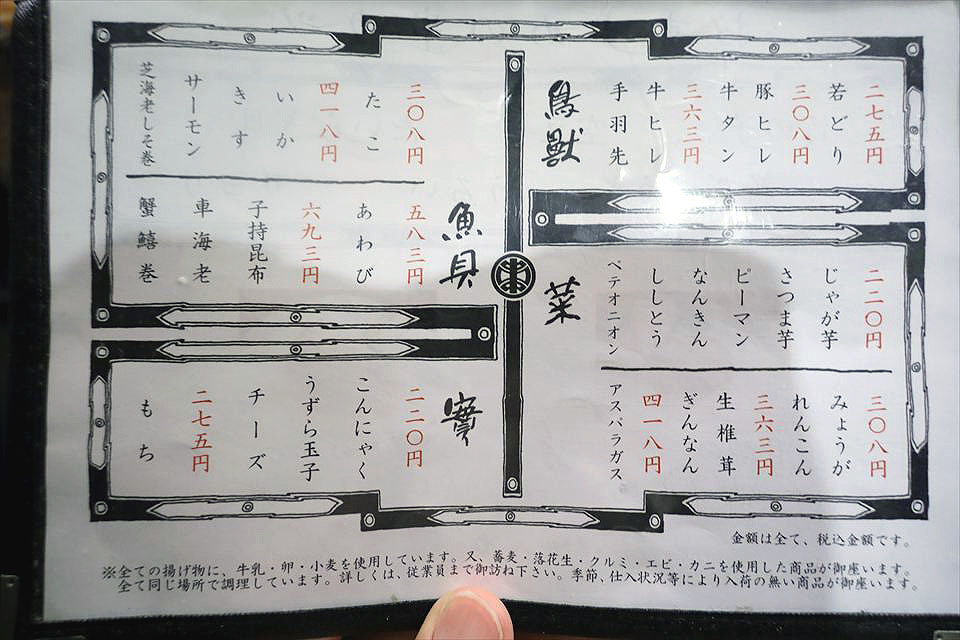 鳥獣
二七五円
若どり
三〇八円
豚ヒレ
牛タン
三六三円
牛ヒレ
手羽先
菜
二二〇円
じゃが芋
さつま芋
ピーマン
なんきん
ししとう
ペテオニオン
三〇八円
みょうが
れんこん
三六三円
生椎茸
ぎんなん
四一八円
アスパラガス
魚貝
三〇八円
たこ
四一八円
いか
きす
サーモン
芝海老しそ巻
五八三円
あわび
六九三円
子持昆布
車海老
蟹鱚巻
實
二二〇円
こんにゃく
うずら玉子
チーズ
二七五円
もち
金額は全て、税込金額です。
※全ての揚げ物に、牛乳・卵・小麦を使用しています。又、蕎麦・落花生・クルミ・エビ・カニを使用した商品が御座います。
全て同じ場所で調理しています。詳しくは、従業員まで御訪ね下さい。季節、仕入状況等により入荷の無い商品が御座います。